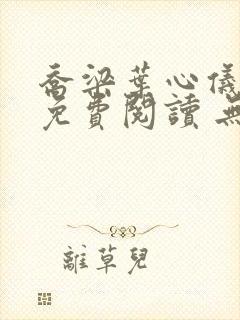 喬梁葉心儀
免費閱讀 無
離草兒